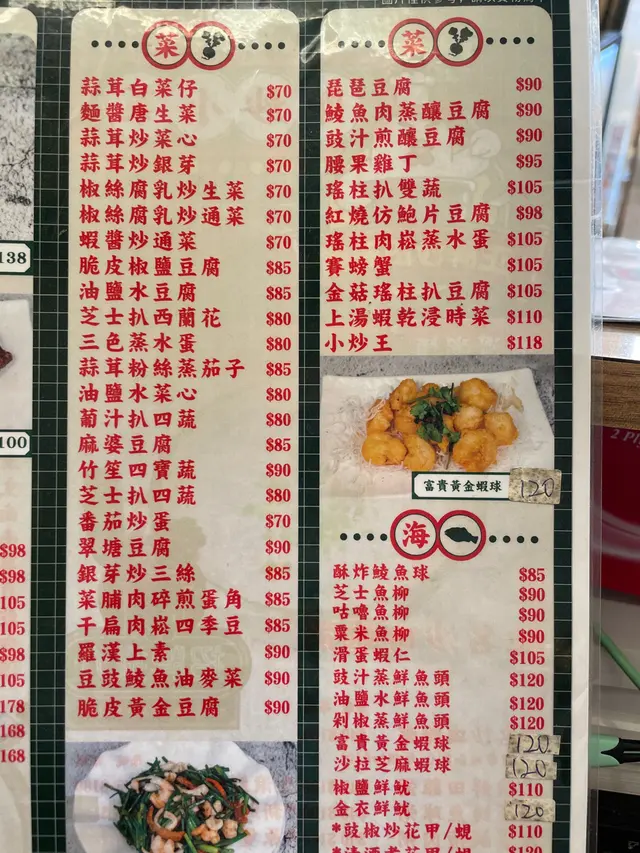 138
100
$98
$98
105
105
$98
105
178
168
168
菜
蒜茸白菜仔 $70
麵醬唐生菜 $70
蒜茸炒菜心 $70
蒜茸炒銀芽 $70
椒絲腐乳炒生菜 $70
椒絲腐乳炒通菜 $70
蝦醬炒通菜 $70
脆皮椒鹽豆腐 $85
油鹽水豆腐 $85
芝士扒西蘭花 $80
三色蒸水蛋 $80
蒜茸粉絲蒸茄子 $85
油鹽水菜心 $80
葡汁扒四蔬 $80
麻婆豆腐 $85
竹笙四寶蔬 $90
芝士扒四蔬 $80
番茄炒蛋 $70
翠塘豆腐 $90
銀芽炒三絲 $85
菜脯肉碎煎蛋角 $85
干扁肉崧四季豆 $85
羅漢上素 $90
豆豉鯪魚油麥菜 $90
脆皮黃金豆腐 $90
菜
琵琶豆腐 $90
鯪魚肉蒸釀豆腐 $90
豉汁煎釀豆腐 $90
腰果雞丁 $95
瑤柱扒雙蔬 $105
紅燒仿鮑片豆腐 $98
瑤柱肉崧蒸水蛋 $105
賽螃蟹 $105
金菇瑤柱扒豆腐 $105
上湯蝦乾浸時菜 $110
小炒王 $118
富貴黃金蝦球 120
海
酥炸鯪魚球 $85
芝士魚柳 $90
咕嚕魚柳 $90
粟米魚柳 $90
滑蛋蝦仁 $105
豉汁蒸鮮魚頭 $120
油鹽水鮮魚頭 $120
剁椒蒸鮮魚頭 $120
富貴黃金蝦球 120
沙拉芝麻蝦球 120
椒鹽鮮魷 $110
金衣鮮魷 120
*豉椒炒花甲/蜆 $110